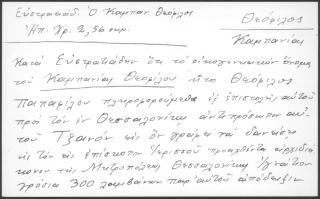 Εὐστρατιάδ. Ὁ Καμπαν. Θεόφιλος
Ἠπ. Χρ. 2, 56 σημ.
Θεόφιλος
Καμπανίας
Κατὰ Εὐστρατιάδην ὅτι τὸ οἰκογενειακὸν ὄνομα
τοῦ Καμπανίας Θεοφίλου ἦτο Θεόφιλος
Παπαφίλου πληροφορούμεθα ἐξ ἐπιστολῆς αὐτοῦ
πρὸς τὸν ἐν Θεσσαλονίκῃ ἀντιπρόσωπον αὐ-
τοῦ Τζανὸν εἰς ὃν γράφει νὰ δανείσῃ
εἰς τὸν ὡς ἐπίσκοπον Ἱερισσοῦ προαχθέντα ἀρχιδιά-
κονον τῆς Μητροπόλεως Θεσσαλονίκης Ἰγνάτιον
γρόσια 300 λαμβάνων παρ' αὐτοῦ ἀπόδειξιν